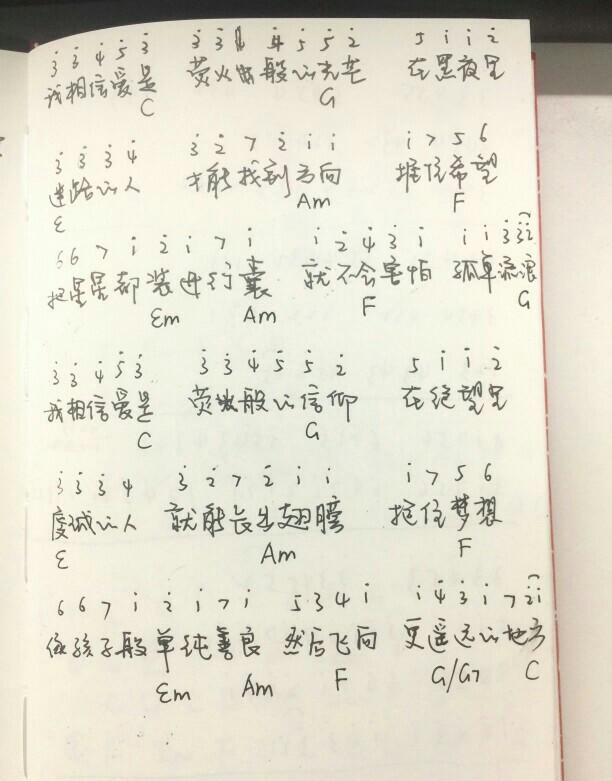 3̇ 3̇ 4̇ 5̇ 3̇ 3̇ 3̇ 4̇ 5̇ 5̇ 2̇ 5 1̇ 1̇ 2̇
我相信爱是 萤火虫般的光芒 在黑夜里
C G
3̇ 3̇ 3̇ 4̇ 3̇ 2̇ 7 2̇ 1̇ 1̇ 1̇ 7 5 6
迷路的人 才能找到方向 抓住希望
E Am F
6 6 7 1̇ 2̇ 1̇ 7 1̇ 1̇ 2̇ 4̇ 3̇ 1̇ 1̇ 1̇ 3̇ 3̇2̇
把星星都装进行囊 就不会害怕 孤单流浪
Em Am F G
3̇ 3̇ 4̇ 5̇ 3̇ 3̇ 3̇ 4̇ 5̇ 5̇ 2̇ 5 1̇ 1̇ 2̇
我相信爱是 萤火般的信仰 在绝望里
C G
3̇ 3̇ 3̇ 4̇ 3̇ 2̇ 7 2̇ 1̇ 1̇ 1̇ 7 5 6
虔诚的人 就能长出翅膀 抱住梦想
E Am F
6 6 7 1̇ 2̇ 1̇ 7 1̇ 5 3 4 1̇ 1̇ 4̇ 3̇ 1̇ 7 2̇1̇
像孩子般单纯善良 然后飞向 更遥远的地方
Em Am F G/G7 C